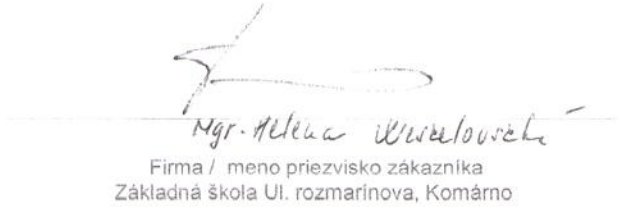 Mgr. Helena Weszelovszká
Firma / meno priezvisko zákazníka
Základná škola Ul. rozmarínova, Komárno